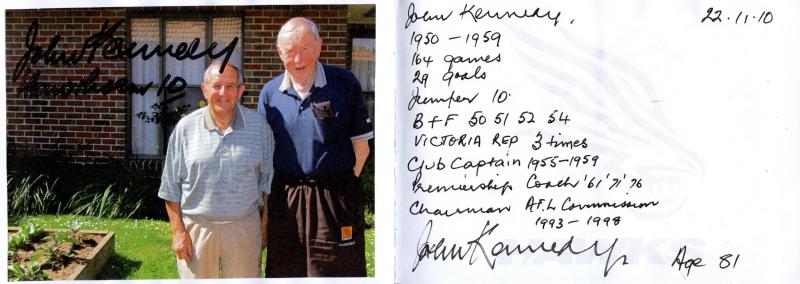 John Kennedy
Hawthorn 10
John Kennedy, 22.11.10
1950 - 1959
164 games
29 goals
Jumper 10.
B+F 50 51 52 54
VICTORIA REP 3 times
Club Captain 1955-1959
Premiership Coach '61 '71 '76
Chairman A.F.L Commission
1993-1998
John Kennedy
Age 81